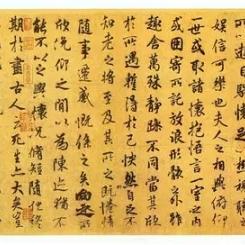 娱信可樂也夫人之相與俯仰
一世或取諸懷抱悟言一室之內
或因寄所託放浪形骸之外雖
趣舍萬殊靜躁不同當其欣
於所遇暫得於己快然自足不
知老之將至及其所之既惓情
隨事遷感慨係之矣向之所
欣俛仰之間以為陳迹猶不
能不以之興懷況脩短隨化終
期於盡古人云死生亦大矣豈